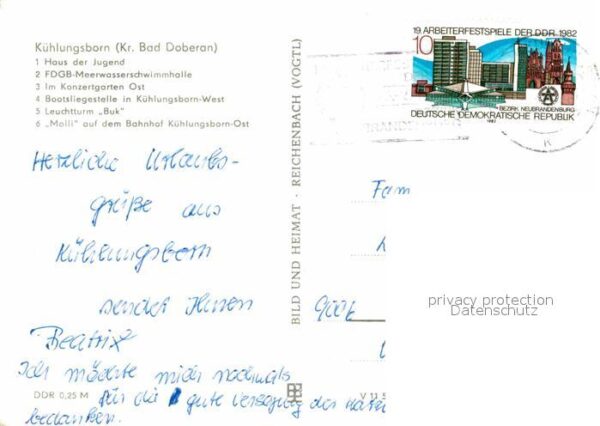 Kühlungsborn (Kr. Bad Doberan)
1 Haus der Jugend
2 FDGB-Meerwasserschwimmhalle
3 Im Konzertgarten Ost
4 Bootsliegestelle in Kühlungsborn-West
5 Leuchtturm „Buk“
6 „Molli“ auf dem Bahnhof Kühlungsborn-Ost
Herzliche Urlaubs-
grüße aus
Kühlungsborn
sendet Ihnen
Beatrix
Ich möchte mich nochmals
für die gute Versorgung der
bedanken.
DDR 0,25 M
BILD UND HEIMAT · REICHENBACH (VOGTL)
V 11 5
19. ARBEITERFESTSPIELE DER DDR 1982
10
BEZIRK NEUBRANDENBURG
DEUTSCHE DEMOKRATISCHE REPUBLIK
1982
Fam
privacy protection
Datenschutz